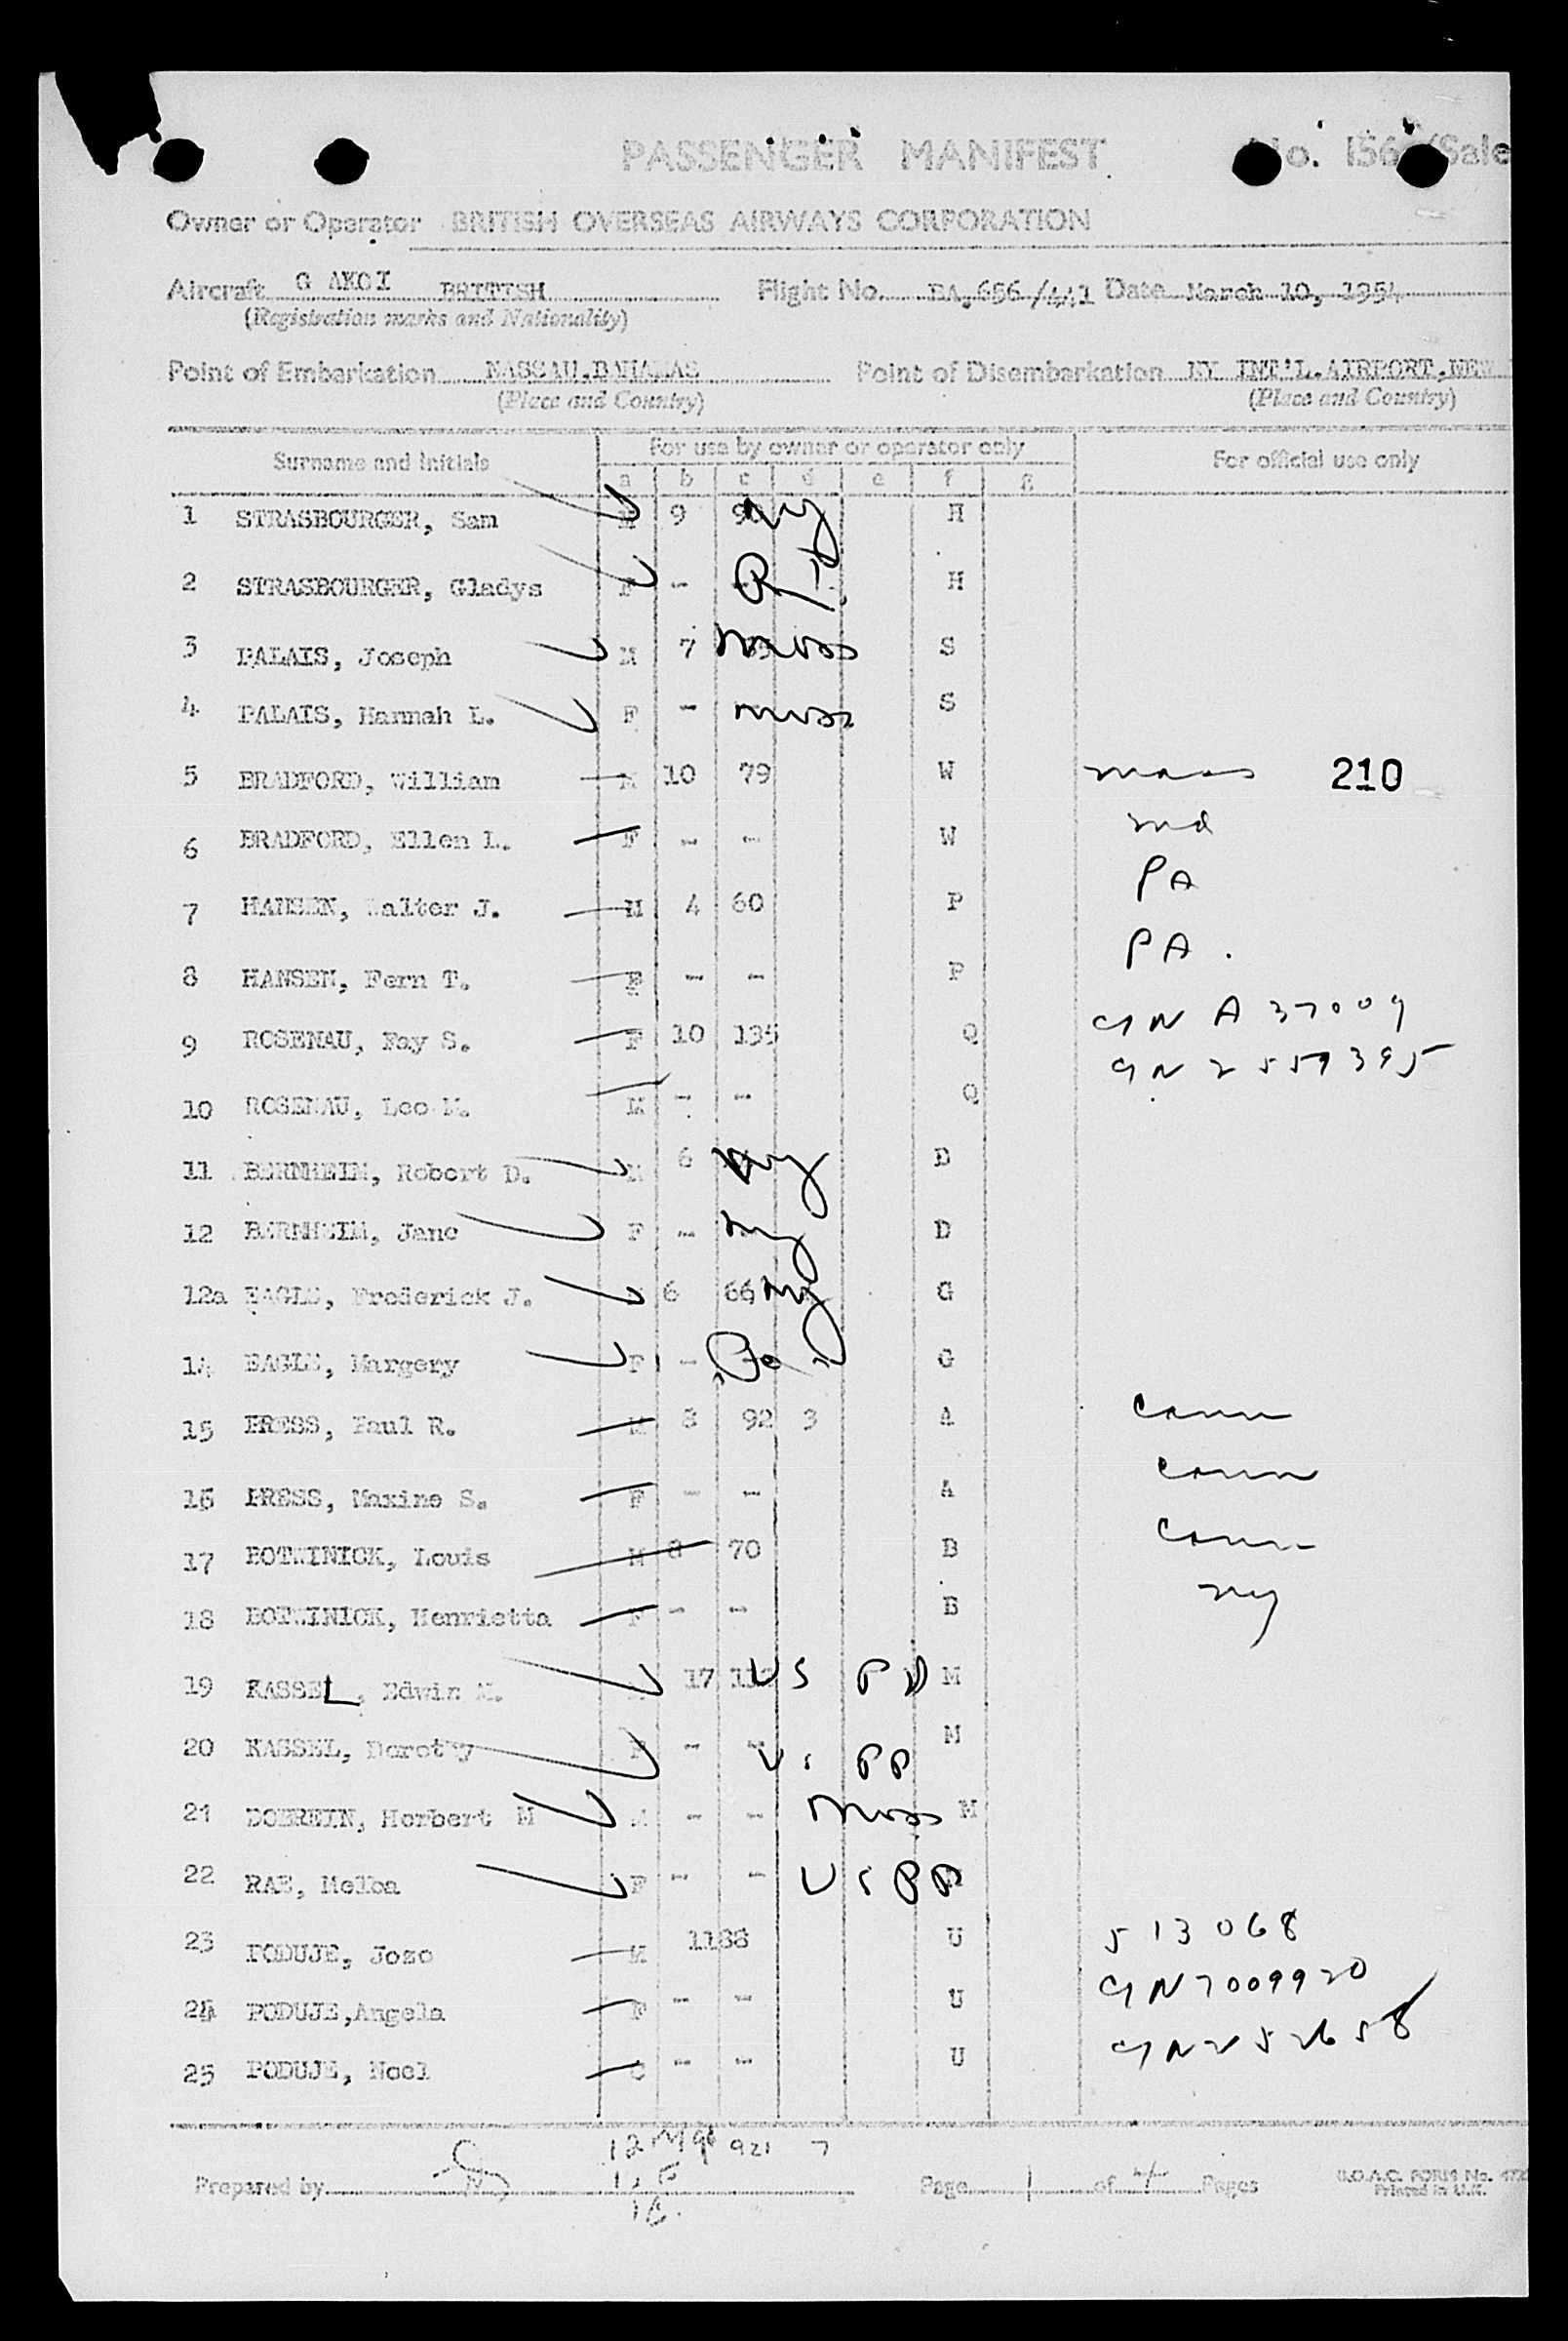 PASSENGER MANIFEST No. 156 /Sale
Owner or Operator BRITISH OVERSEAS AIRWAYS CORPORATION
Aircraft G AKGI BRITISH Flight No. BA.656/441 Date March 10, 1954
(Registration marks and Nationality)
Point of Embarkation NASSAU,BAHAMAS Point of Disembarkation NY INT'L.AIRPORT,NEW
(Place and Country) (Place and Country)
Surname and Initials For use by owner or operator only For official use only
a b c d e f g
1 STRASBOURGER, Sam M 9 NY H
2 STRASBOURGER, Gladys F - H
3 PALAIS, Joseph M 7 Mass S
4 PALAIS, Hannah L. F - Mass S
5 BRADFORD, William M 10 79 W Mass 210
6 BRADFORD, Ellen L. F - - W Md
7 HANSEN, Walter J. M 4 60 P PA
8 HANSEN, Fern T. F - - P PA.
9 ROSENAU, Fay S. F 10 135 Q CN A 37009
10 ROSENAU, Leo M. M - - Q CN 2559395
11 BERNHEIM, Robert D. M 6 NY D
12 BERNHEIM, Jane F - NY D
12a EAGLE, Frederick J. M 6 66 NY G
14 EAGLE, Margery F - G
15 PRESS, Paul R. M 8 92 3 A Conn
16 PRESS, Maxine S. F - - A Conn
17 BOTWINICK, Louis M 8 70 B Conn
18 BOTWINICK, Henrietta F - - B NY
19 KASSEL, Edwin M. 17 US PP M
20 KASSEL, Dorothy F - - US PP M
21 DOBREIN, Herbert M M - - Mass M
22 RAE, Melba F - - US PP
23 PODUJE, Jose M 1188 U 513068
24 PODUJE,Angela F - - U CN 7009920
25 PODUJE, Noel C - - U CN 252658
12 M 921 7
Prepared by 12 F Page 1 of 4 Pages B.O.A.C. FORM No.
1C. Printed in U.K.